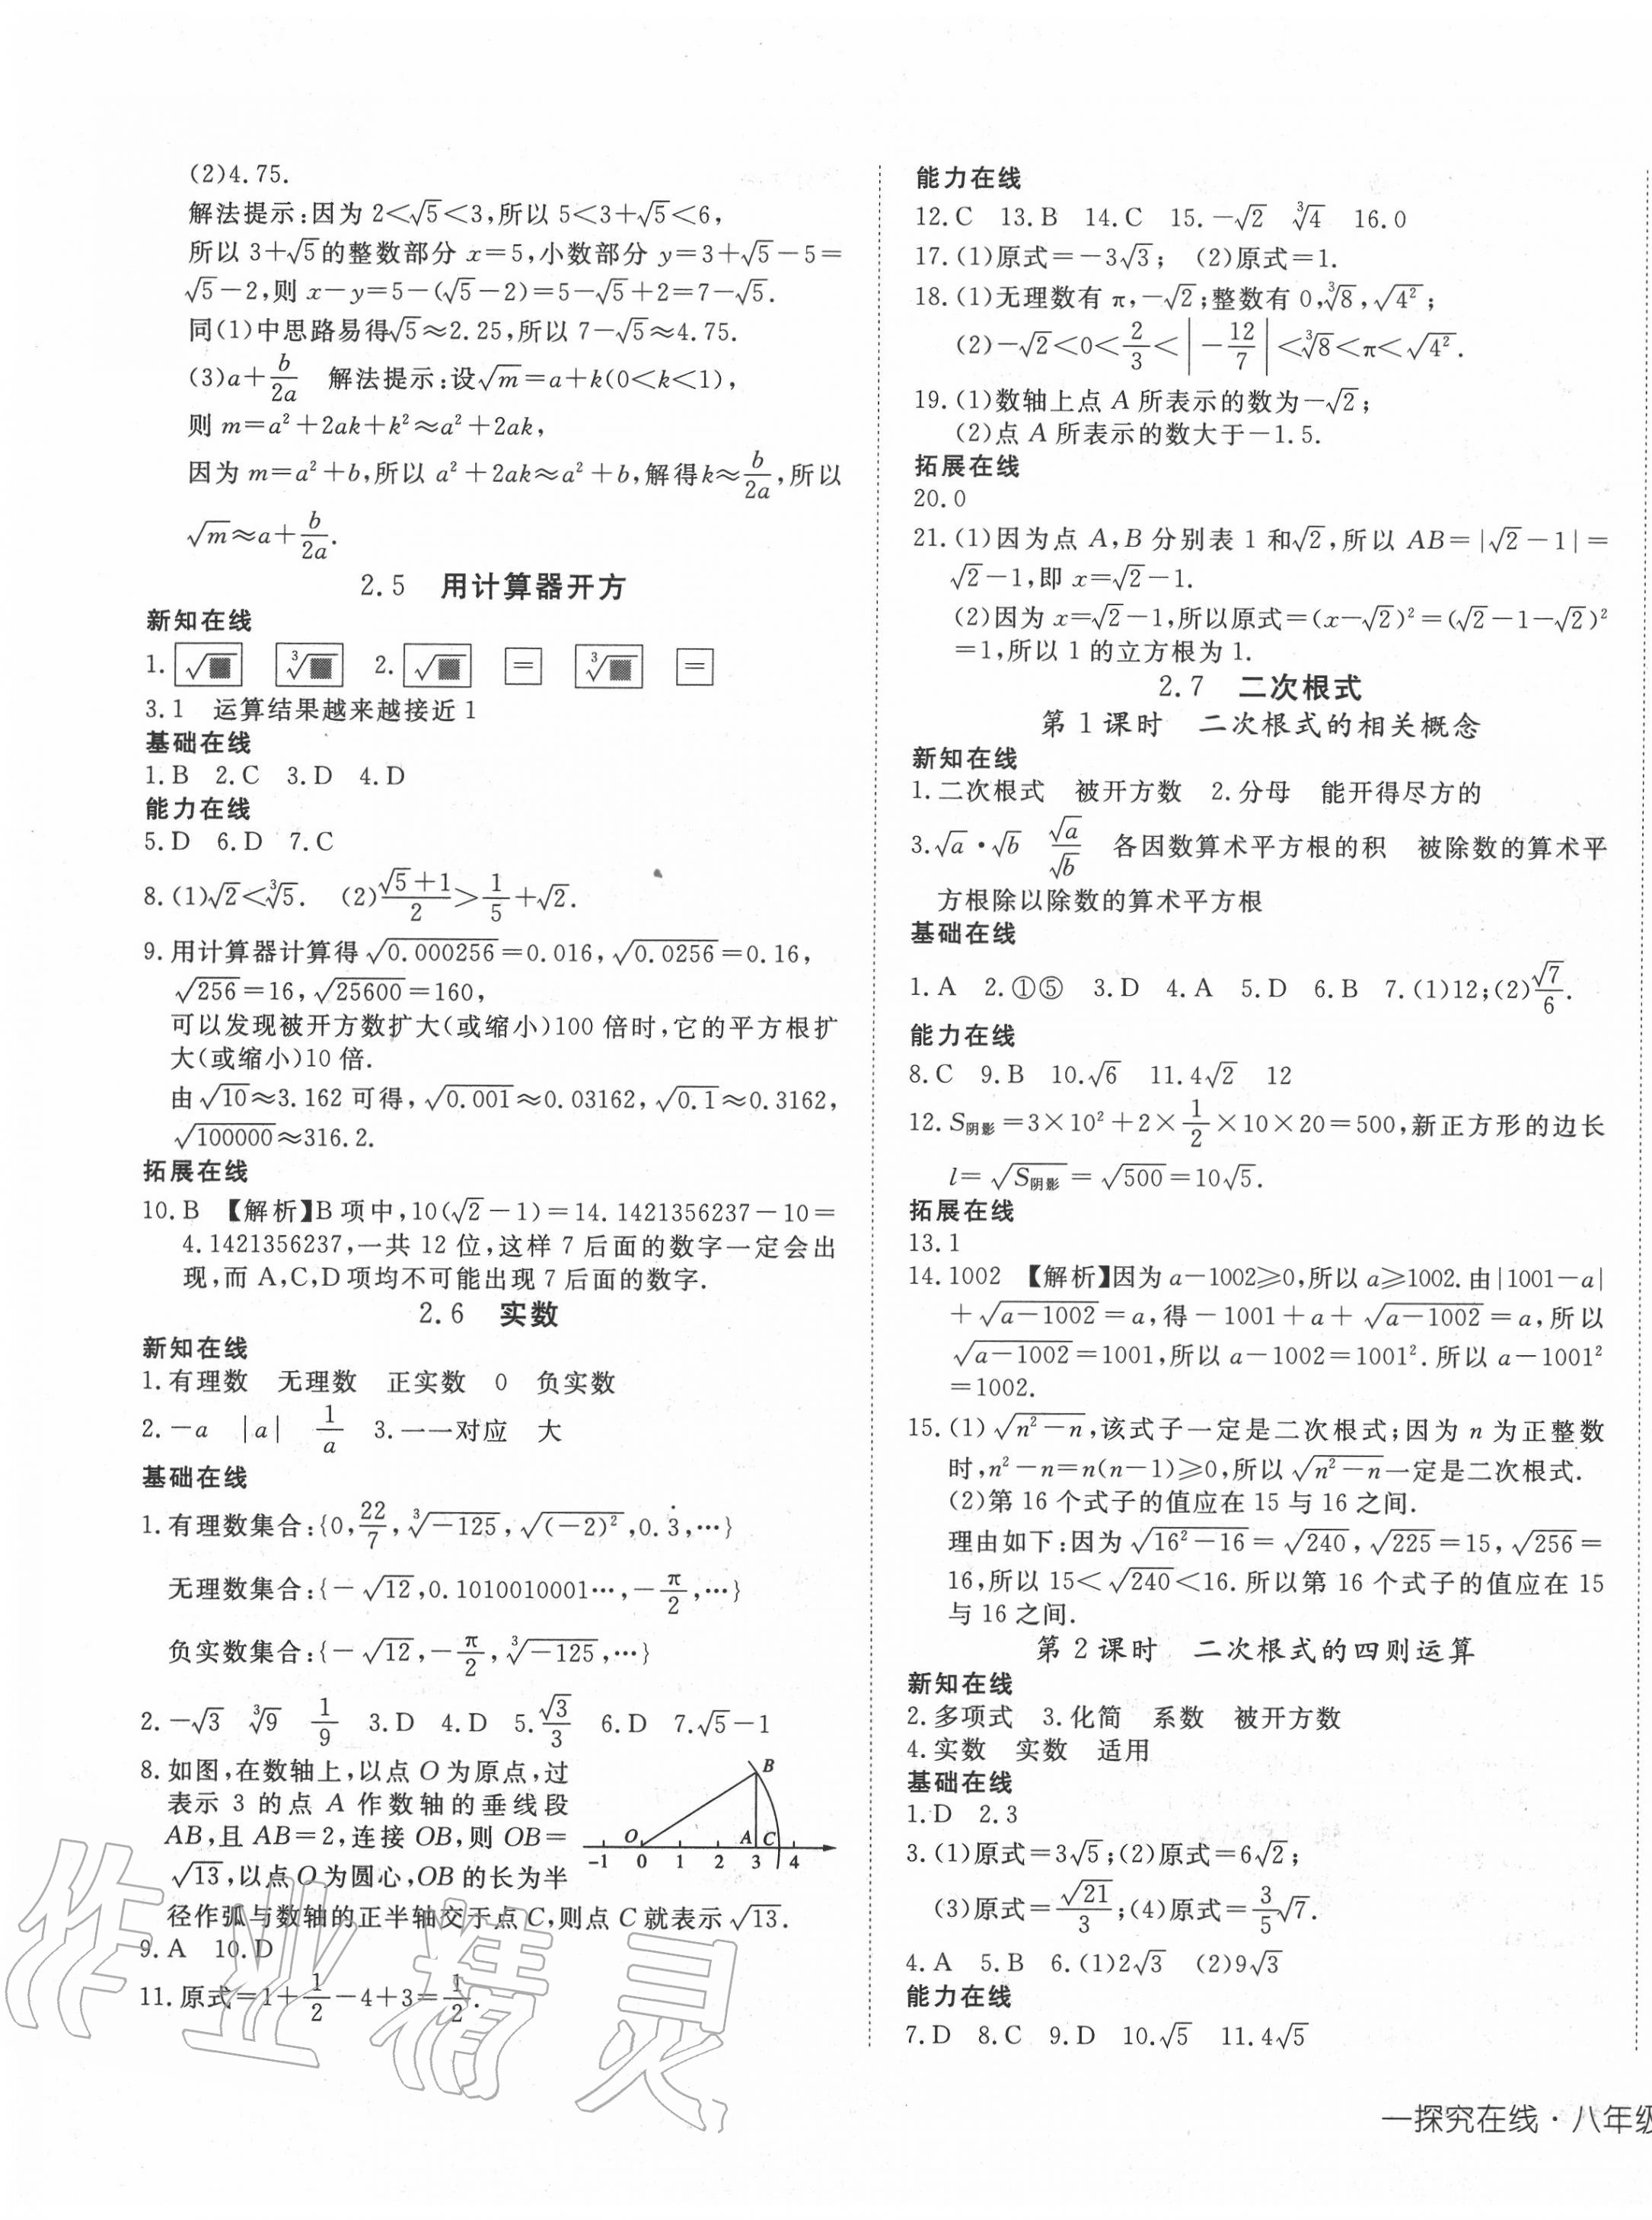 (2)4.75.
解法提示:因为 2<√5<3,所以 5<3+√5<6,
所以 3+√5的整数部分 x=5,小数部分 y=3+√5-5=
√5-2,则 x-y=5-(√5-2)=5-√5+2=7-√5.
同(1)中思路易得√5≈2.25,所以 7-√5≈4.75.
(3)a+b/2a 解法提示:设√m=a+k(0<k<1),
则 m=a²+2ak+k²≈a²+2ak,
因为 m=a²+b,所以 a²+2ak≈a²+b,解得k≈b/2a,所以
√m≈a+b/2a.
2.5 用计算器开方
新知在线
1. √■ ³√■ 2. √■ = ³√■ =
3.1 运算结果越来越接近1
基础在线
1.B 2.C 3.D 4.D
能力在线
5.D 6.D 7.C
8.(1)√2<³√5. (2)(√5+1)/2>1/5+√2.
9.用计算器计算得√0.000256=0.016,√0.0256=0.16,
√256=16,√25600=160,
可以发现被开方数扩大(或缩小)100 倍时,它的平方根扩
大(或缩小)10 倍.
由√10≈3.162 可得,√0.001≈0.03162,√0.1≈0.3162,
√100000≈316.2.
拓展在线
10.B 【解析】B 项中,10(√2-1)=14.1421356237-10=
4.1421356237,一共 12 位,这样 7 后面的数字一定会出
现,而 A,C,D 项均不可能出现 7 后面的数字.
2.6 实数
新知在线
1.有理数 无理数 正实数 0 负实数
2.-a |a| 1/a 3.一一对应 大
基础在线
1.有理数集合:{0,22/7,³√-125,√(-2)²,0.3̇,…}
无理数集合:{-√12,0.1010010001…,-π/2,…}
负实数集合:{-√12,-π/2,³√-125,…}
2.-√3 ³√9 1/9 3.D 4.D 5.√3/3 6.D 7.√5-1
8.如图,在数轴上,以点 O 为原点,过
表示 3 的点 A 作数轴的垂线段
AB,且 AB=2,连接 OB,则 OB=
√13,以点 O 为圆心,OB 的长为半
径作弧与数轴的正半轴交于点 C,则点 C 就表示√13.
B
O A C
-1 0 1 2 3 4
9.A 10.D
11.原式=1+1/2-4+3=1/2.
能力在线
12.C 13.B 14.C 15.-√2 ³√4 16.0
17.(1)原式=-3√3; (2)原式=1.
18.(1)无理数有 π,-√2;整数有 0,³√8,√4²;
(2)-√2<0<2/3<|-12/7|<³√8<π<√4².
19.(1)数轴上点 A 所表示的数为-√2;
(2)点 A 所表示的数大于-1.5.
拓展在线
20.0
21.(1)因为点 A,B 分别表 1 和√2,所以 AB=|√2-1|=
√2-1,即 x=√2-1.
(2)因为 x=√2-1,所以原式=(x-√2)²=(√2-1-√2)²
=1,所以 1 的立方根为 1.
2.7 二次根式
第 1 课时 二次根式的相关概念
新知在线
1.二次根式 被开方数 2.分母 能开得尽方的
3.√a·√b √a/√b 各因数算术平方根的积 被除数的算术平
方根除以除数的算术平方根
基础在线
1.A 2.①⑤ 3.D 4.A 5.D 6.B 7.(1)12;(2)√7/6.
能力在线
8.C 9.B 10.√6 11.4√2 12
12.S阴影=3×10²+2×1/2×10×20=500,新正方形的边长
l=√S阴影=√500=10√5.
拓展在线
13.1
14.1002 【解析】因为 a-1002≥0,所以 a≥1002.由|1001-a|
+√a-1002=a,得-1001+a+√a-1002=a,所以
√a-1002=1001,所以 a-1002=1001².所以 a-1001²
=1002.
15.(1)√n²-n,该式子一定是二次根式;因为 n 为正整数
时,n²-n=n(n-1)≥0,所以√n²-n一定是二次根式.
(2)第 16 个式子的值应在 15 与 16 之间.
理由如下:因为√16²-16=√240,√225=15,√256=
16,所以 15<√240<16.所以第 16 个式子的值应在 15
与 16 之间.
第 2 课时 二次根式的四则运算
新知在线
2.多项式 3.化简 系数 被开方数
4.实数 实数 适用
基础在线
1.D 2.3
3.(1)原式=3√5;(2)原式=6√2;
(3)原式=√21/3;(4)原式=3/5√7.
4.A 5.B 6.(1)2√3 (2)9√3
能力在线
7.D 8.C 9.D 10.√5 11.4√5
一探究在线·八年级
作业精灵